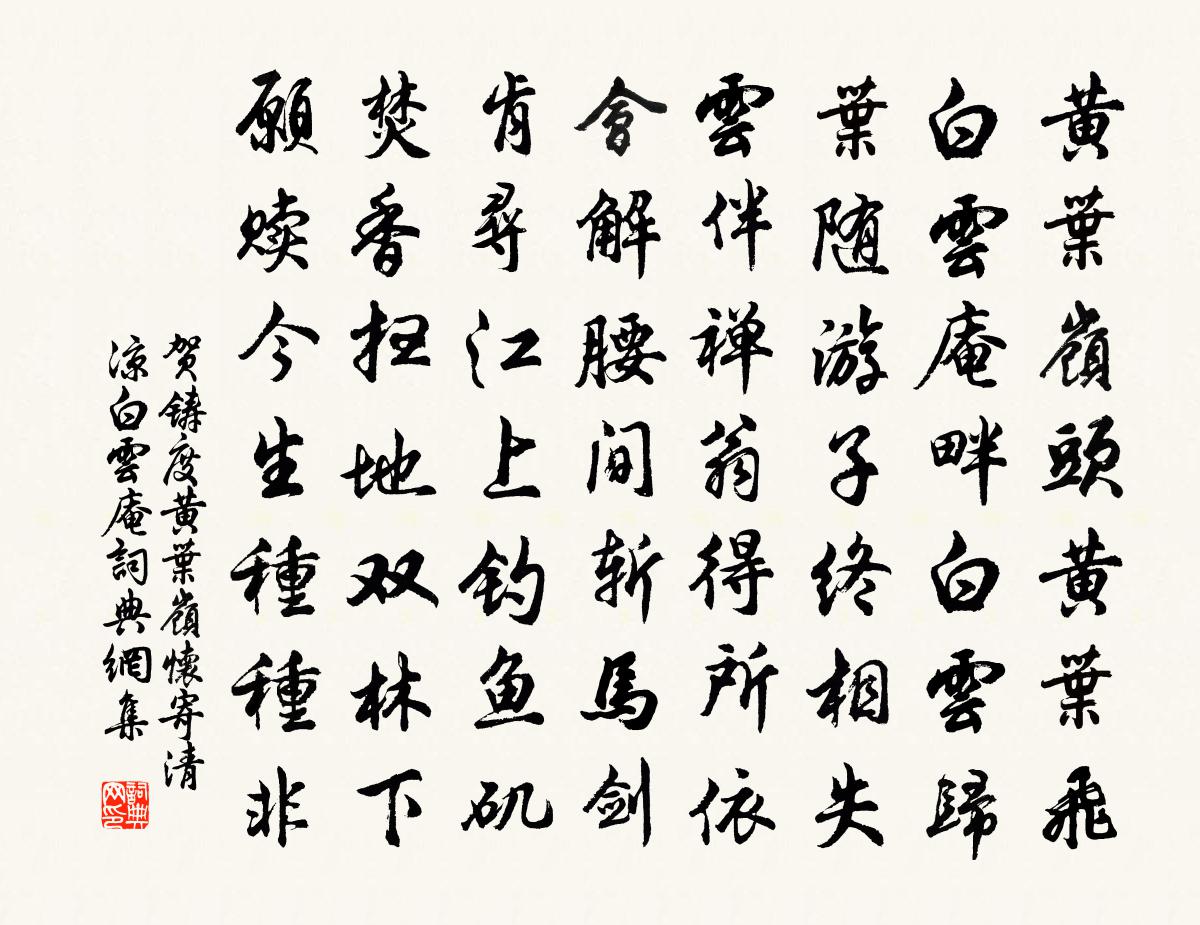 黄葉嶺頭黄葉飛
白雲庵畔白雲歸
葉随游子終相失
雲伴禅翁得所依
會解腰間斬馬剑
肯尋江上釣魚矶
焚香扫地双林下
願赎今生種種非
贺鑄度黄葉嶺懷寄清
凉白雲庵詞典網集
詞典网印